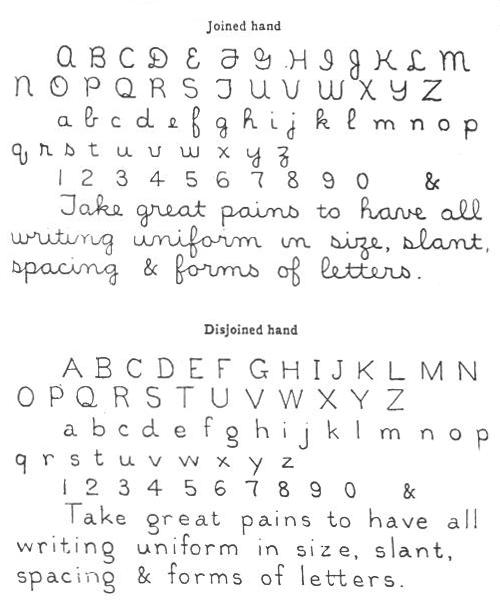 Joined hand
A B C D E F G H I J K L M
N O P Q R S T U V W X Y Z
a b c d e f g h i j k l m n o p
q r s t u v w x y z
1 2 3 4 5 6 7 8 9 0 &
Take great pains to have all
writing uniform in size, slant,
spacing & forms of letters.
Disjoined hand
A B C D E F G H I J K L M N
O P Q R S T U V W X Y Z
a b c d e f g h i j k l m n o p
q r s t u v w x y z
1 2 3 4 5 6 7 8 9 0 &
Take great pains to have all
writing uniform in size, slant,
spacing & forms of letters.